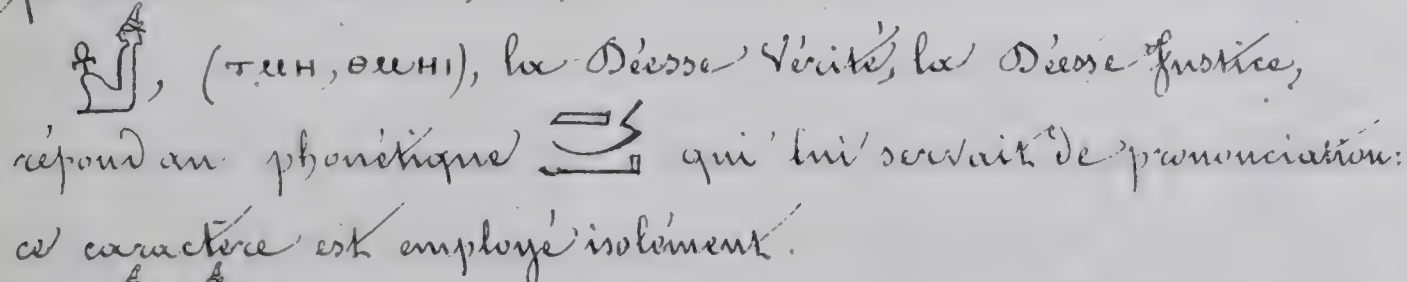 𓁦, (ⲧⲙⲏ, ⲑⲙⲏⲓ), la Déesse Vérité, la Déesse Justice,
répond au phonétique 𓐙𓌳𓂝 qui lui servait de prononciation:
ce caractère est employé isolément.